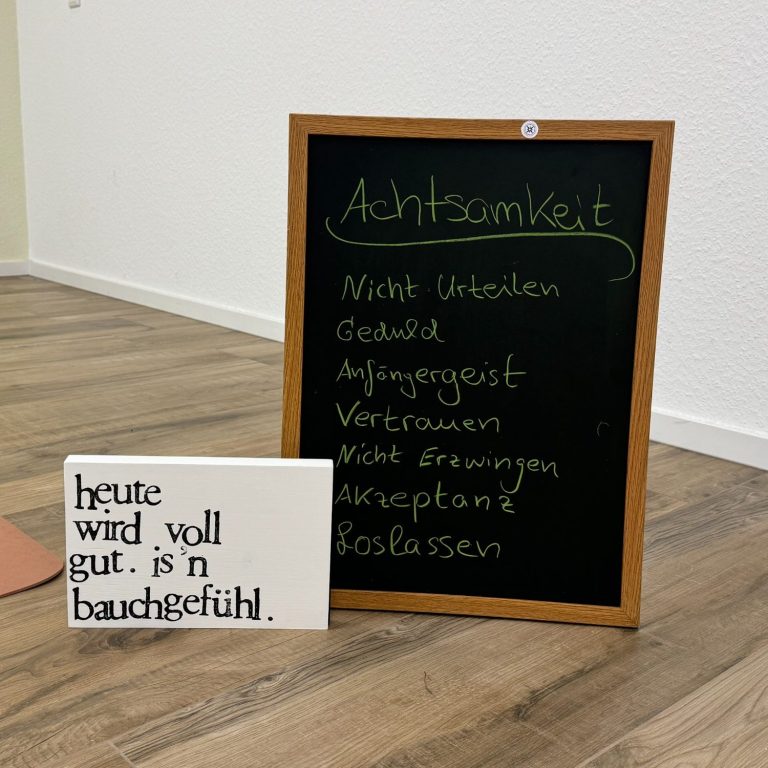 Achtsamkeit
Nicht Urteilen
Geduld
Anfängergeist
Vertrauen
Nicht Erzwingen
Akzeptanz
Loslassen
heute
wird voll
gut. is'n
bauchgefühl.